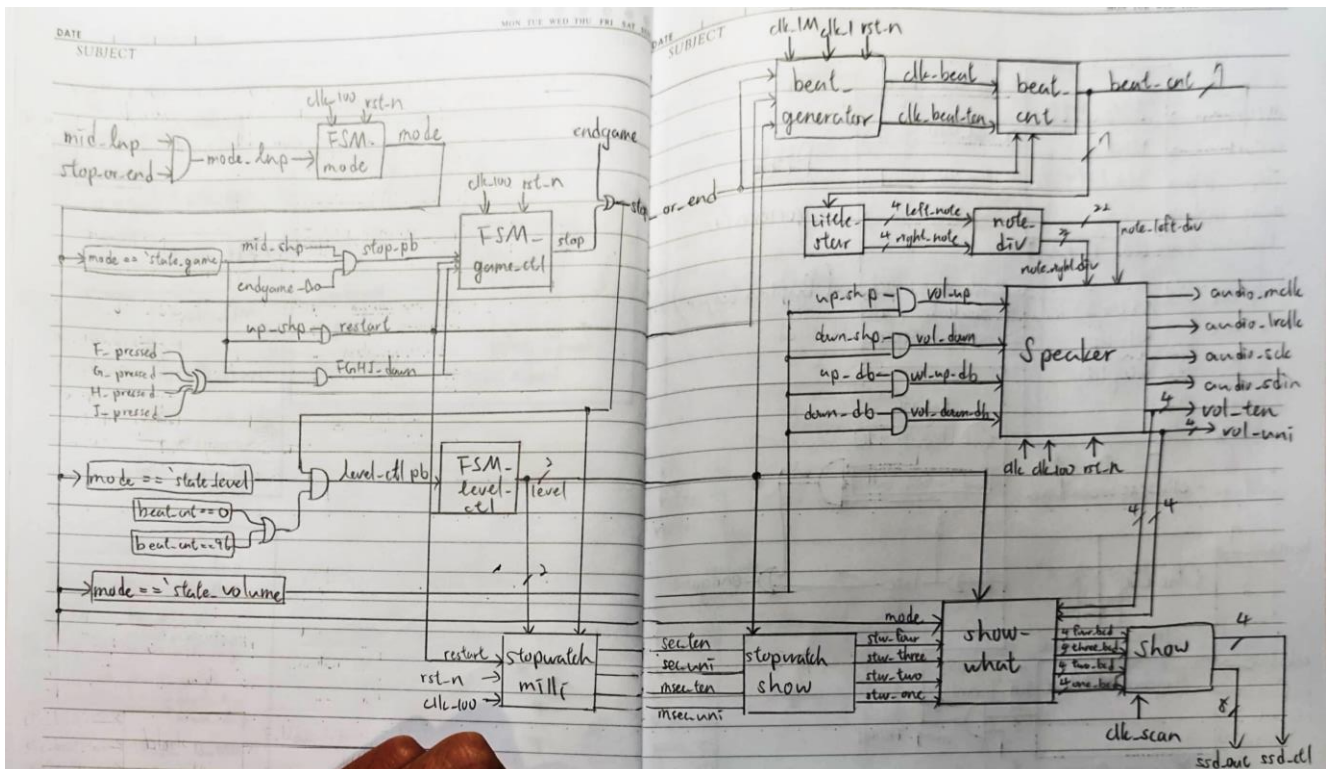 DATE
SUBJECT
MON TUE WED THU FRI SAT
clk_100 rst_n
mid_lnp
stop_or_end
mode_lnp
FSM_
mode
mode
endgame
clk_100 rst_n
mode == `state_game
mid_shp
endgame
stop_pb
FSM_
game_ctl
stop
stop_or_end
up_shp
restart
F_pressed
G_pressed
H_pressed
I_pressed
FGHI_down
mode == `state_level
level_ctl_pb
FSM_
level_
ctl
2
level
beat_cnt == 0
beat_cnt == 96
2
mode == `state_volume
restart
rst_n
clk_100
stopwatch
milli
DATE
SUBJECT
MON TUE WED THU
clk_1M clk_1 rst_n
beat_
generator
clk_beat
clk_beat_ten
beat_
cnt
beat_cnt 7
7
little_
star
4 left_note
4 right_note
note_
div
22
note_left_div
note_right_div
up_shp
vol_up
down_shp
vol_down
up_db
vol_up_db
down_db
vol_down_db
Speaker
audio_mclk
audio_lrclk
audio_sck
audio_sdin
4 vol_ten
4 vol_uni
clk clk_100 rst_n
4 4
mode
sec_ten
sec_uni
msec_ten
msec_uni
stopwatch
show
stw_four
stw_three
stw_two
stw_one
show_
what
4 four_bcd
4 three_bcd
4 two_bcd
4 one_bcd
show
4
8
clk_scan
ssd_out ssd_ctl